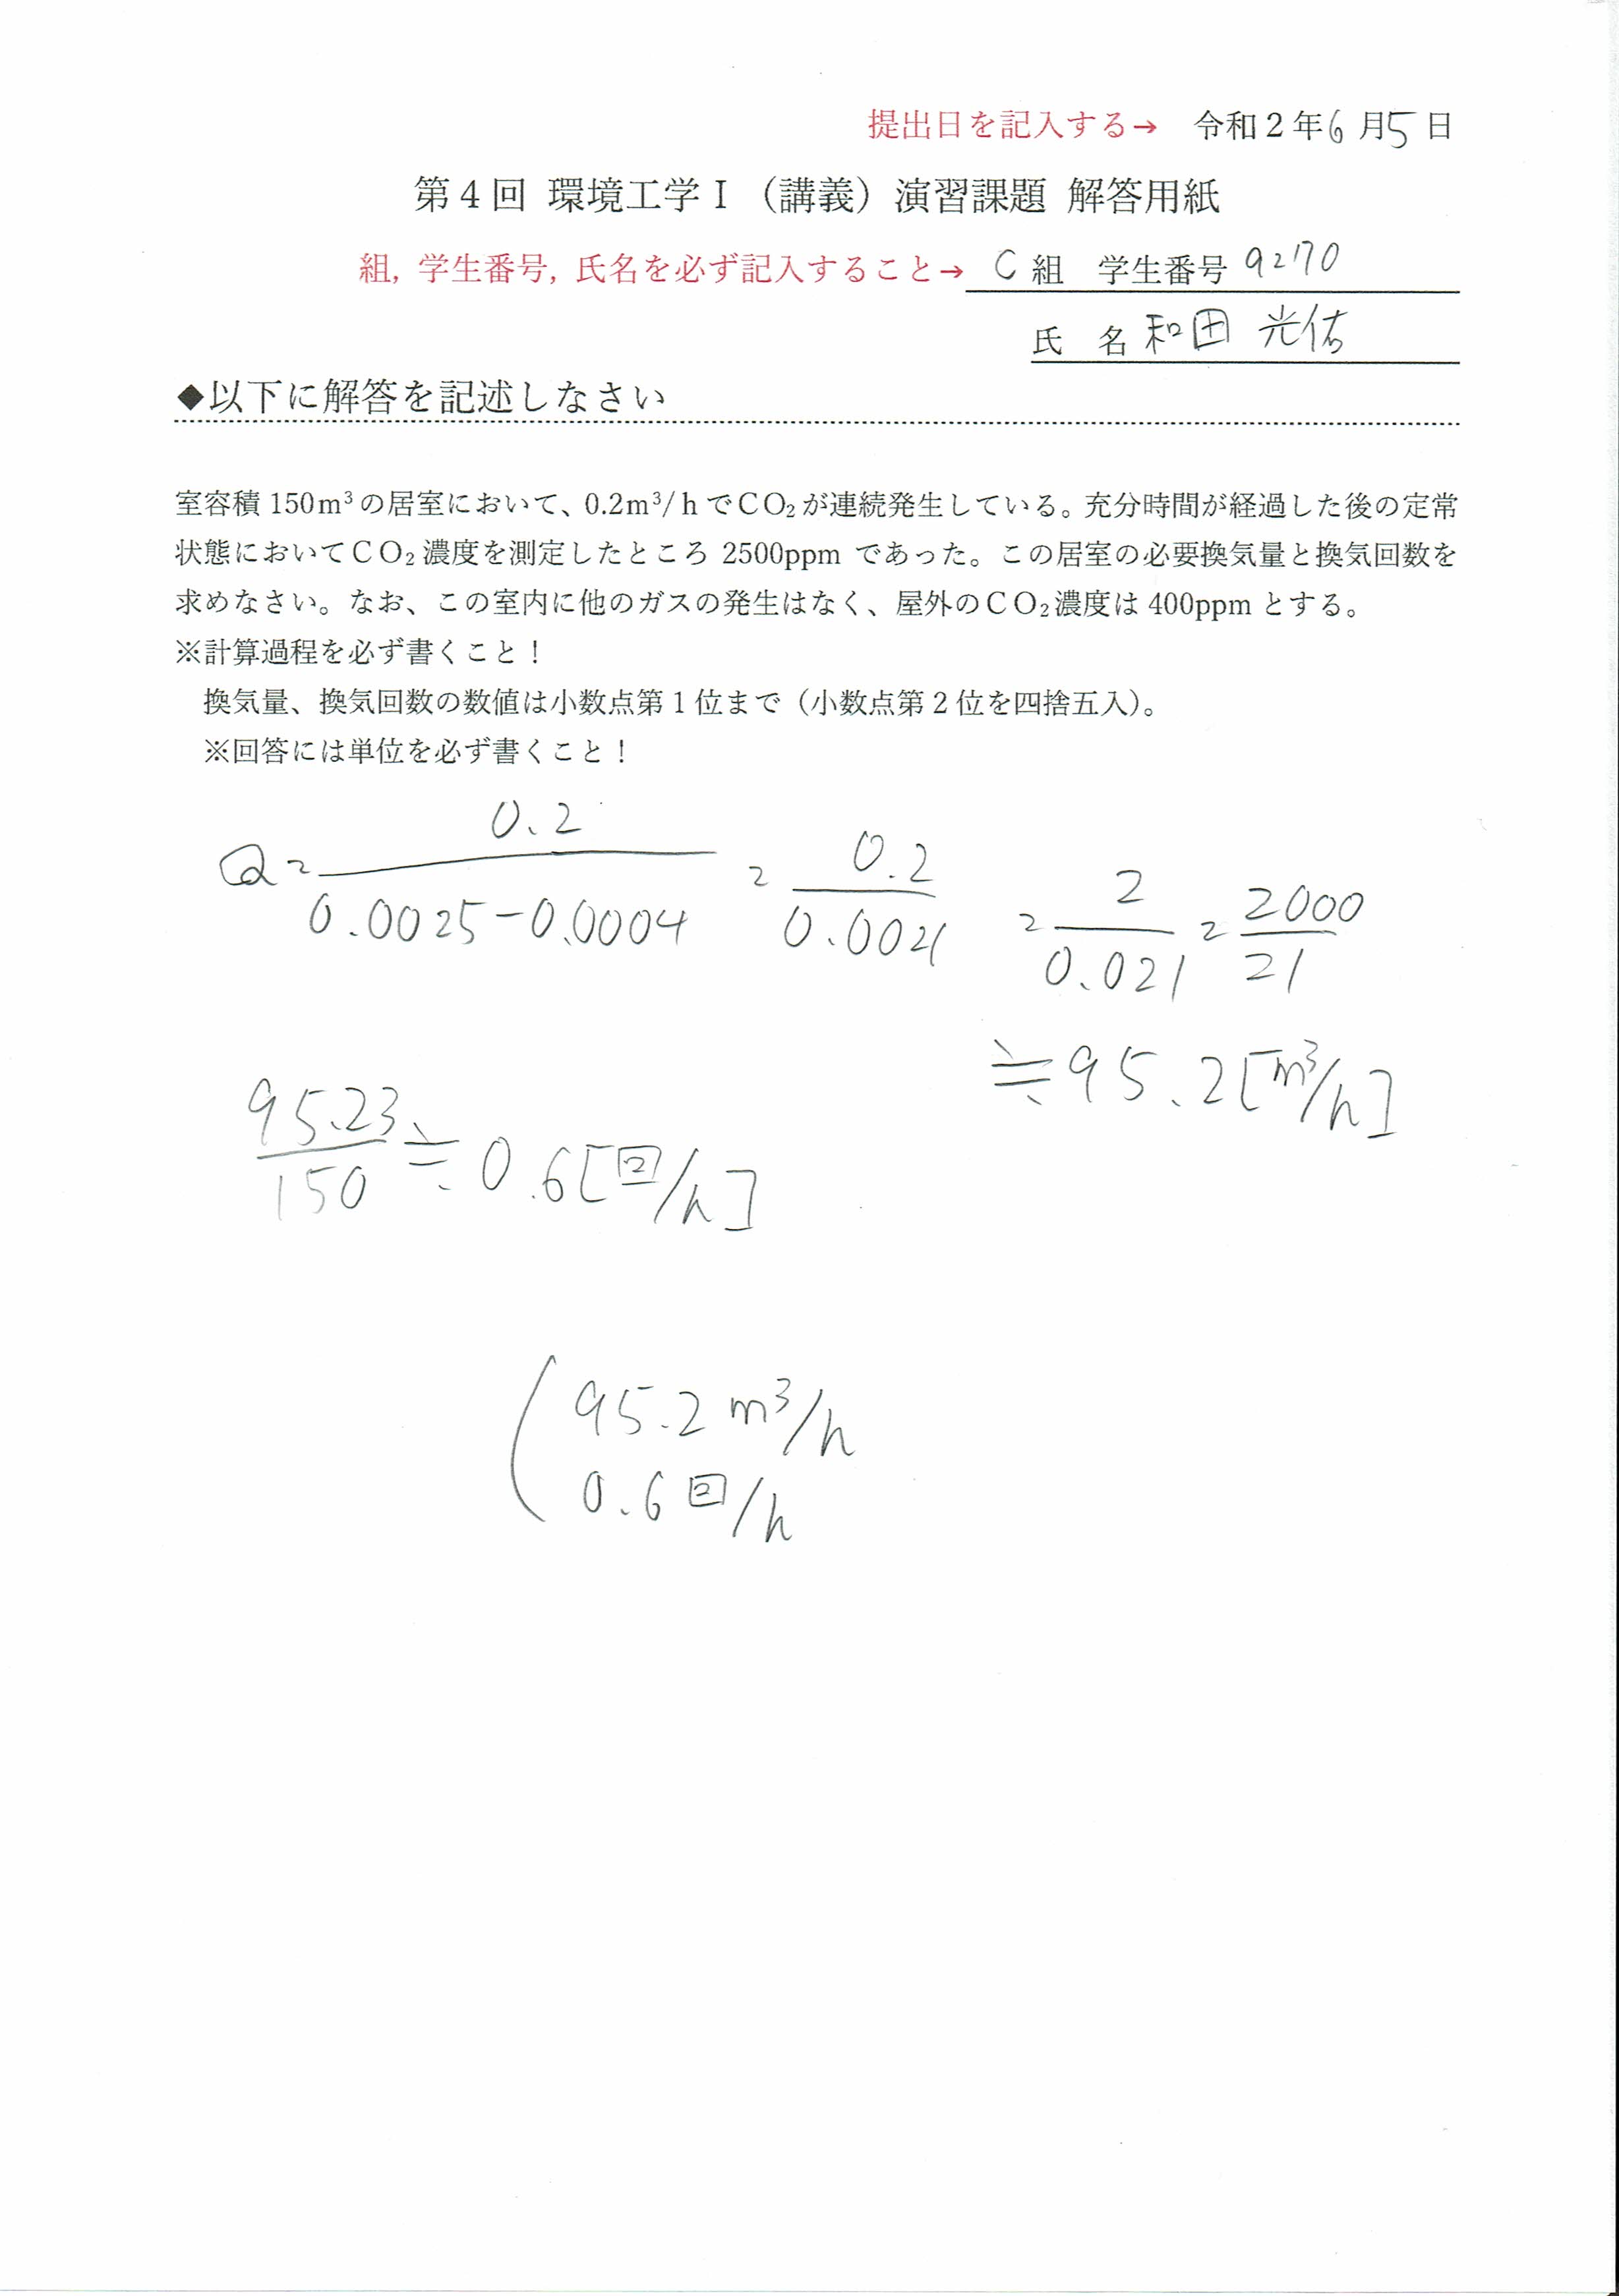 提出日を記入する→ 令和2年6月5日
第4回 環境工学Ⅰ（講義）演習課題 解答用紙
組, 学生番号, 氏名を必ず記入すること→ C組 学生番号 9270
氏 名 和田 光佑
◆以下に解答を記述しなさい
室容積150m³の居室において、0.2m³/hでCO₂が連続発生している。充分時間が経過した後の定常
状態においてCO₂濃度を測定したところ2500ppmであった。この居室の必要換気量と換気回数を
求めなさい。なお、この室内に他のガスの発生はなく、屋外のCO₂濃度は400ppmとする。
※計算過程を必ず書くこと！
換気量、換気回数の数値は小数点第1位まで（小数点第2位を四捨五入）。
※回答には単位を必ず書くこと！
Q = 0.2 / 0.0025-0.0004 = 0.2 / 0.0021 = 2 / 0.021 = 2000 / 21
≒95.2[m³/h]
95.23 / 150 ≒ 0.6[回/h]
95.2 m³/h
0.6回/h